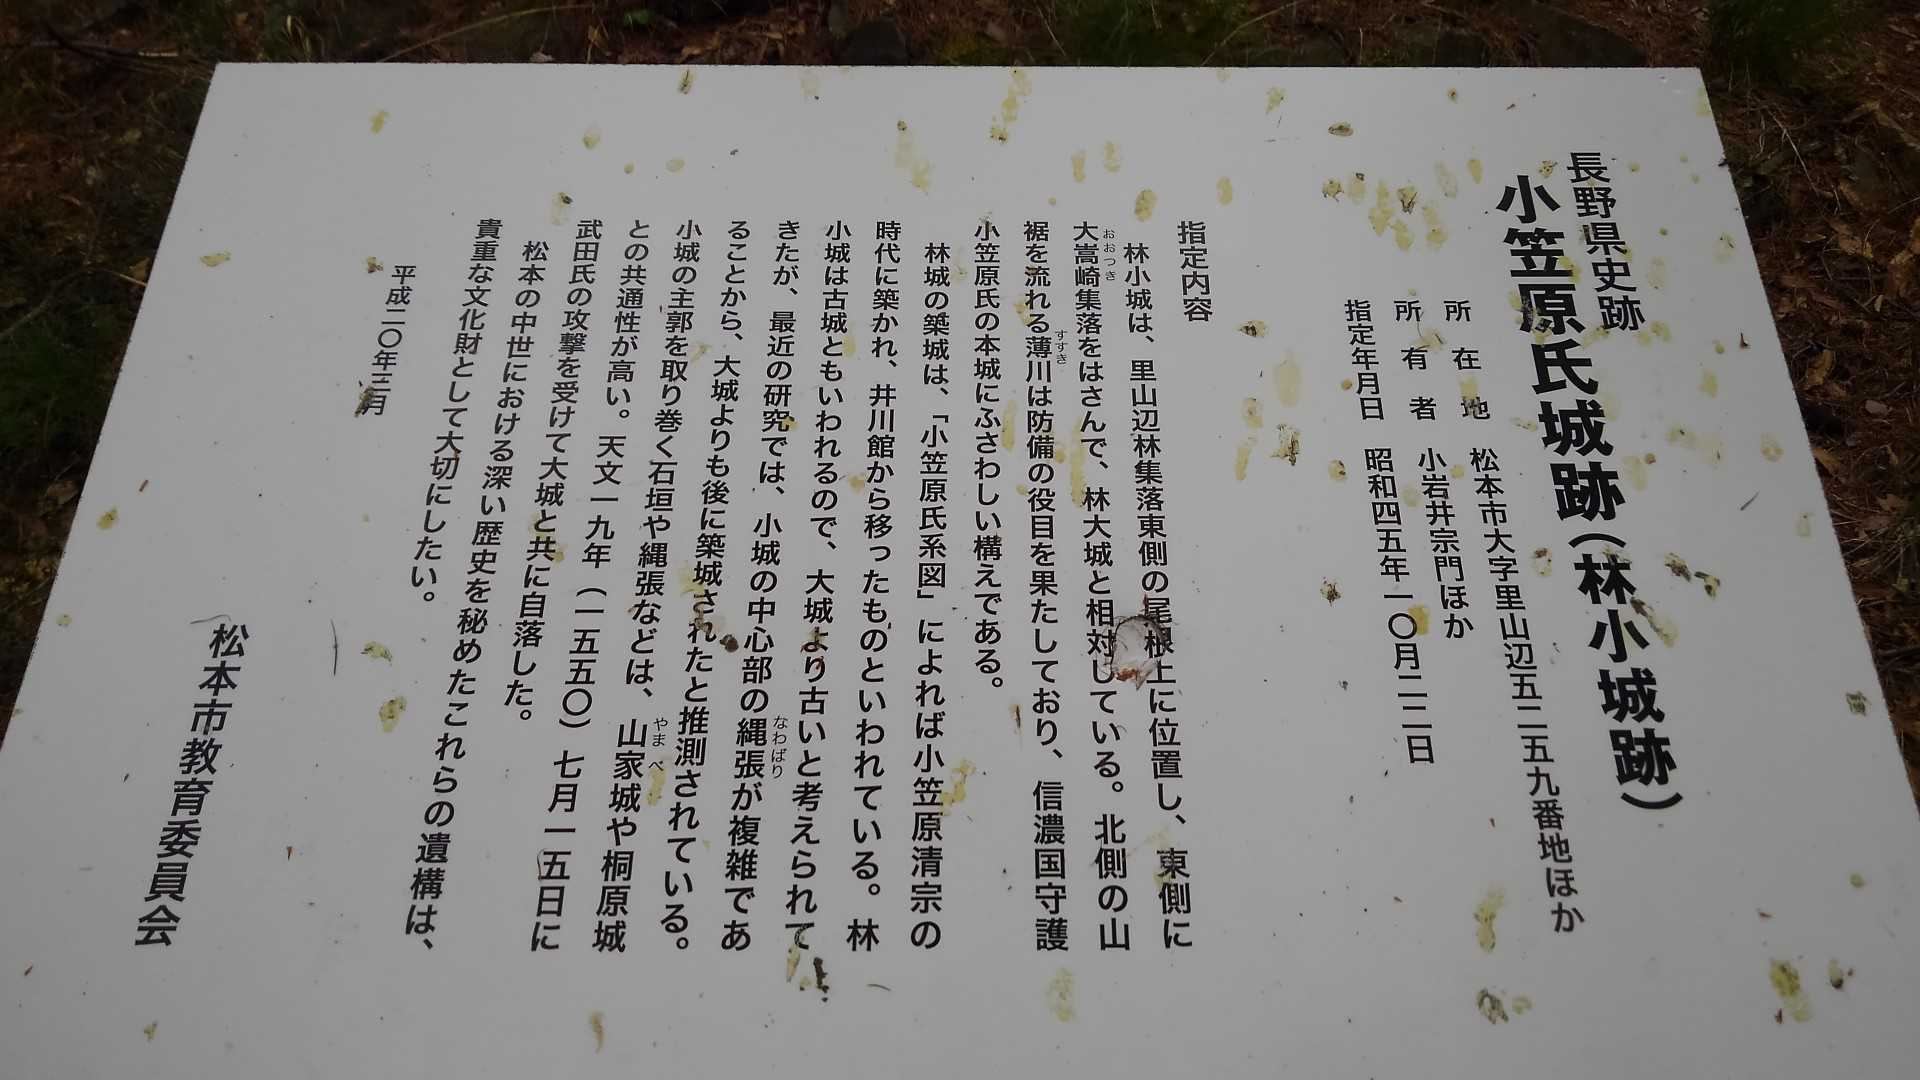 長野県史跡
小笠原氏城跡(林小城跡)
所在地 松本市大字里山辺五二五九番地ほか
所有者 小岩井宗門ほか
指定年月日 昭和四五年一〇月二二日
指定内容
林小城は、里山辺林集落東側の尾根上に位置し、東側に
大嵩崎集落をはさんで、林大城と相対している。北側の山
おおつき
裾を流れる薄川は防備の役目を果たしており、信濃国守護
すすき
小笠原氏の本城にふさわしい構えである。
林城の築城は、「小笠原氏系図」によれば小笠原清宗の
時代に築かれ、井川館から移ったものといわれている。林
小城は古城ともいわれるので、大城より古いと考えられて
きたが、最近の研究では、小城の中心部の縄張が複雑であ
なわばり
ることから、大城よりも後に築城されたと推測されている。
小城の主郭を取り巻く石垣や縄張などは、山家城や桐原城
やまべ
との共通性が高い。天文一九年(一五五〇)七月一五日に
武田氏の攻撃を受けて大城と共に自落した。
松本の中世における深い歴史を秘めたこれらの遺構は、
貴重な文化財として大切にしたい。
平成二〇年三月
松本市教育委員会